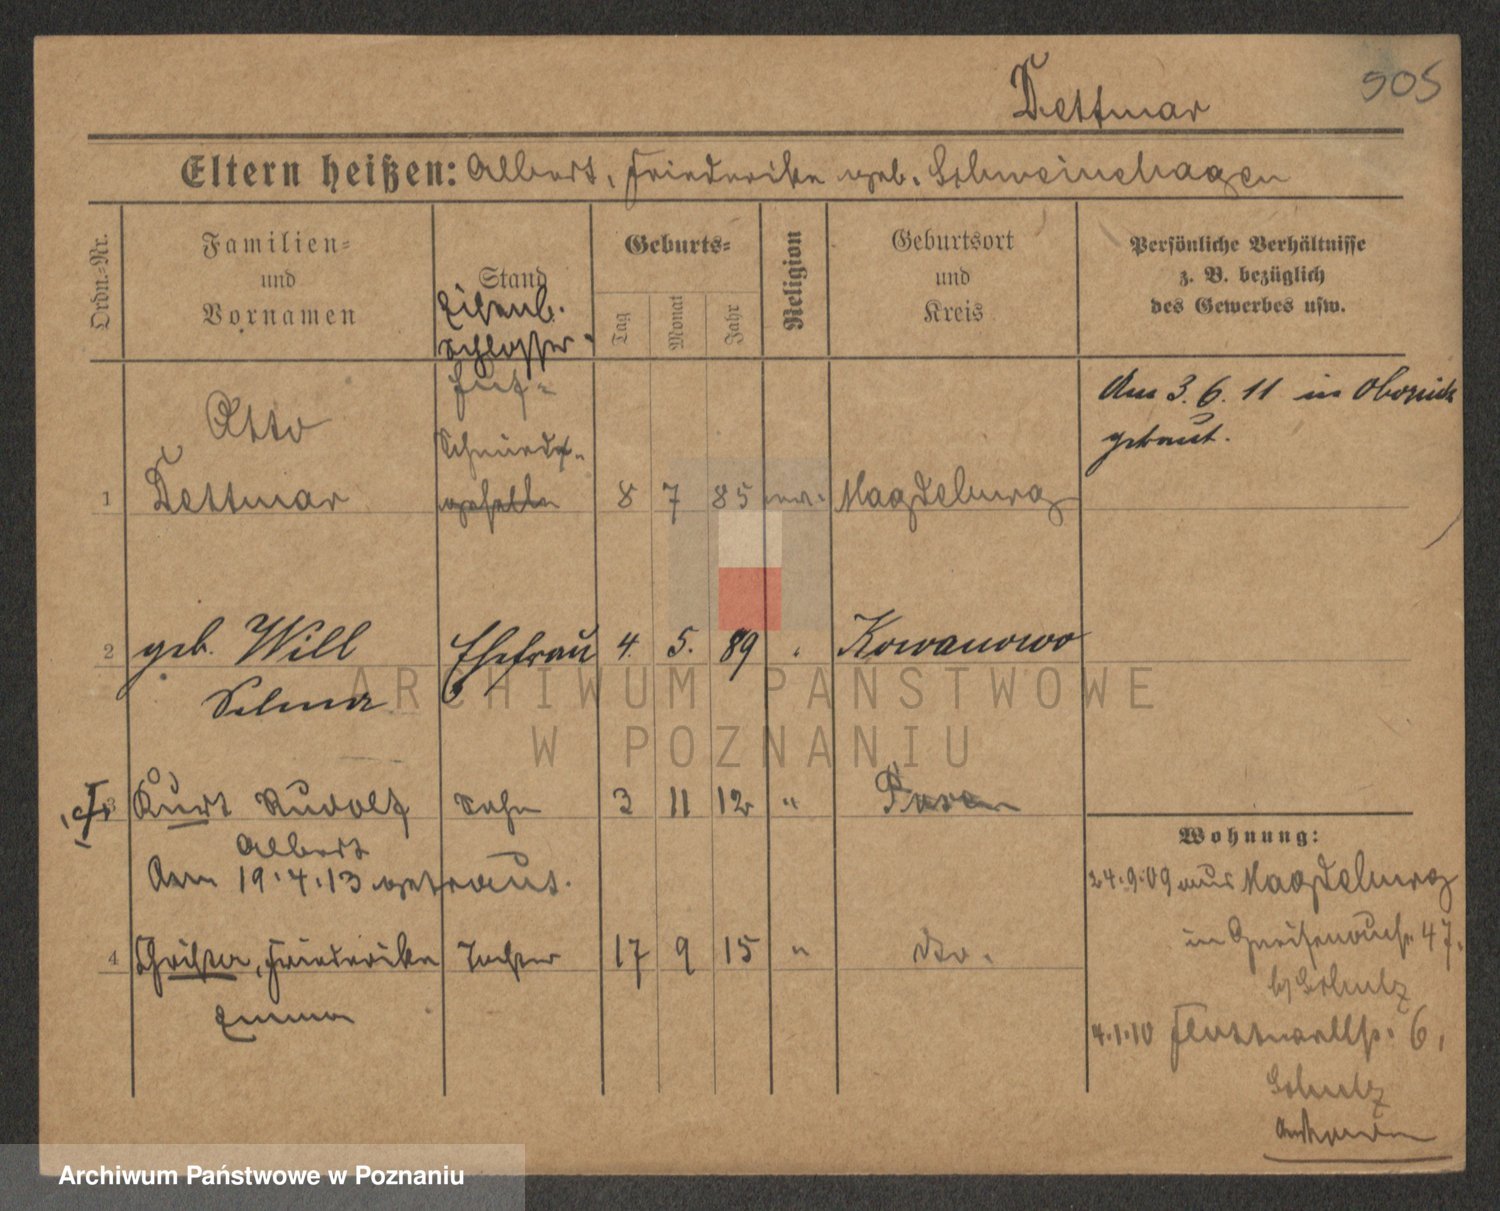 905
Dettmar
Eltern heißen: Albert, Friederike geb. Schweinehagen
Ordn.-Nr.
Familien-
und
Vornamen
Stand
Eisenb.
schlosser
Geburts-
Tag
Monat
Jahr
Religion
Geburtsort
und
Kreis
Persönliche Verhältnisse
z. B. bezüglich
des Gewerbes usw.
Huf-
schmiede-
geselle
Am 3. 6. 11 in Obornik
getraut.
Otto
1 Dettmar 8 7 85 ev. Magdeburg
2 geb. Will Ehefrau 4. 5. 89 " Kowanowo
Selma
3 Kurt Rudolf Sohn 3 11 12 " Posen
Albert
Am 19.4.13 getauft.
4 Christa, Friederike Tochter 17 9 15 " dto.
Emma
Wohnung:
24.9.09 aus Magdeburg
in Gneisenaustr. 47.
b/ Schulz
4.1.10 Flottwellstr. 6,
Schulz
ARCHIWUM PAŃSTWOWE
W POZNANIU
Archiwum Państwowe w Poznaniu